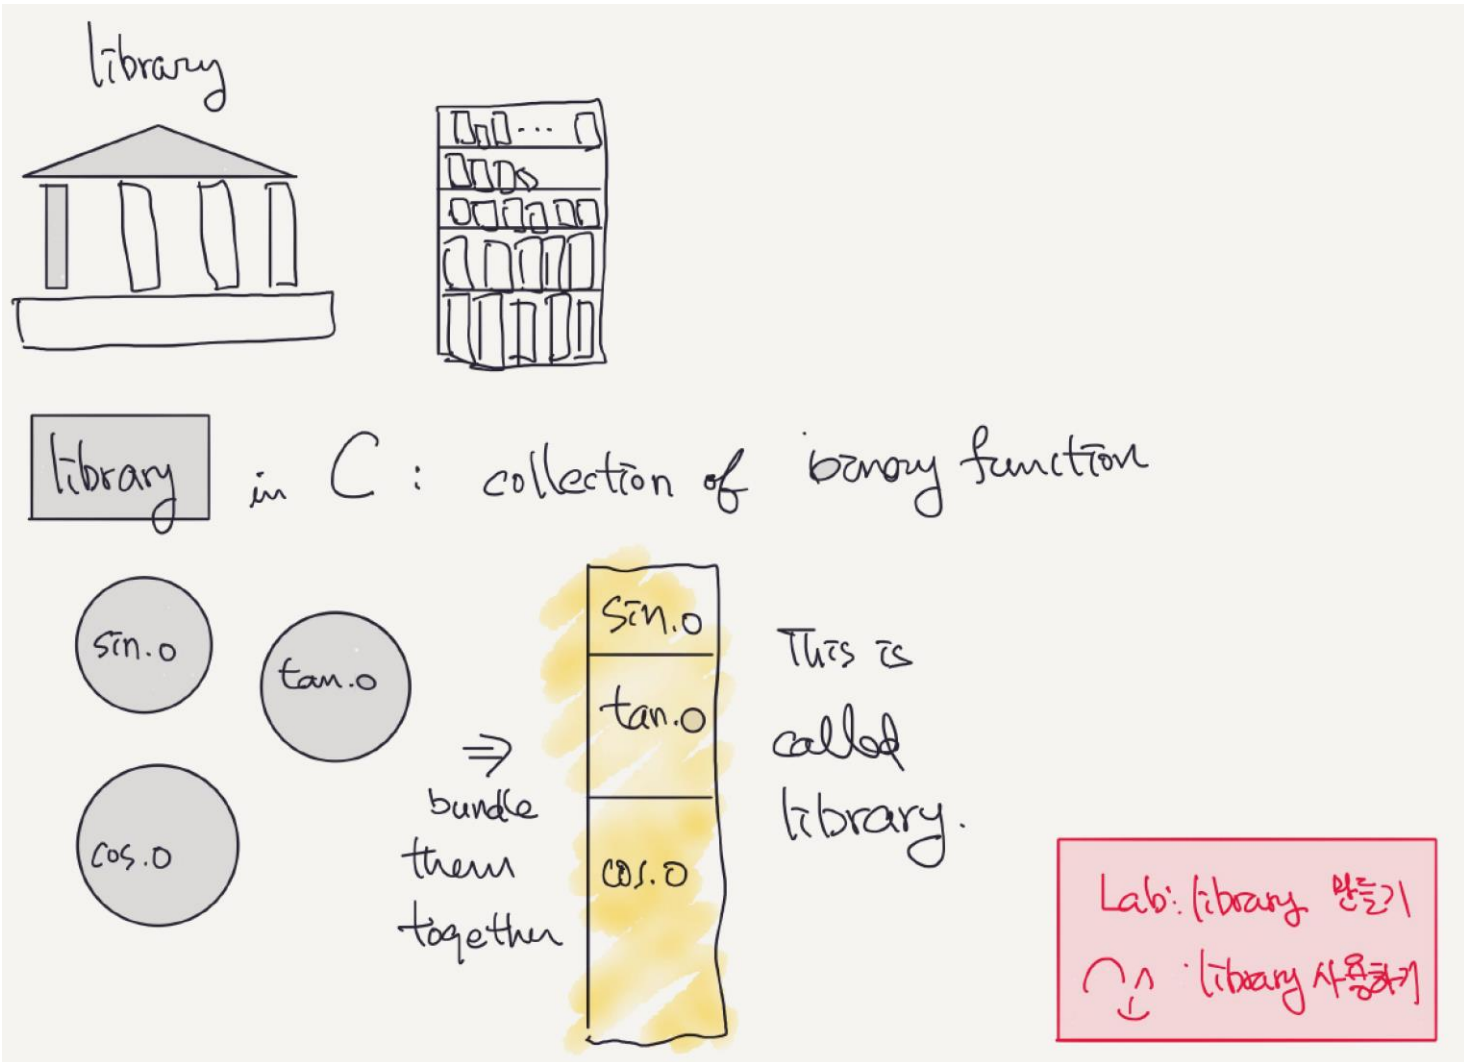 library
library in C : collection of binary function
sin.o
tan.o
cos.o
⇒
bundle
them
together
sin.o
tan.o
cos.o
This is
called
library.
Lab: library 만들기
library 사용하기